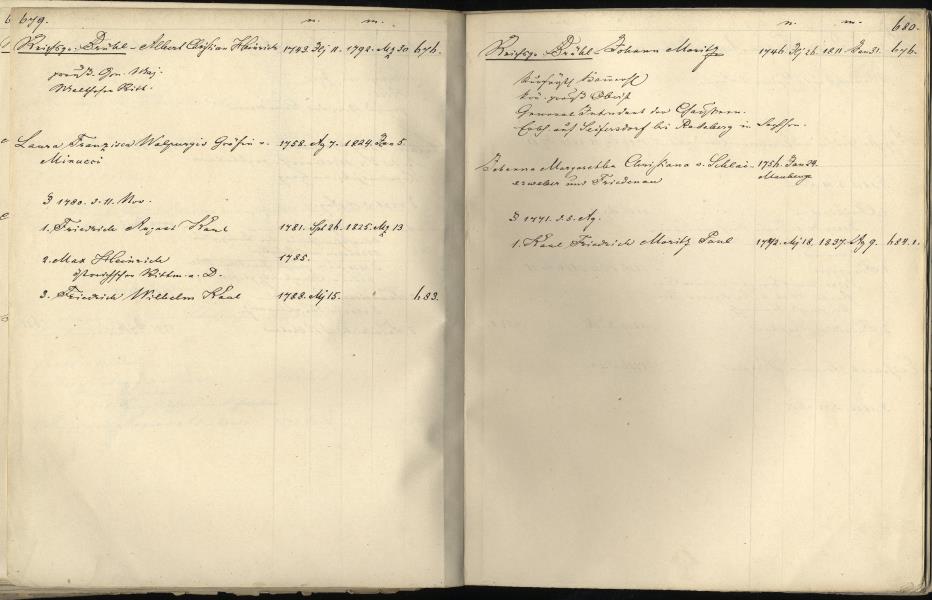 679.
n. m.
Reichsgr. Brühl - Albert Christian Heinrich 1743. Jlj 11. 1792. Mz 30. 676.
preuß. Gen. Maj.
Malthser Ritt.
Laura Franzisca Walpurgis Gräfin v. 1758. Ag 7. 1824. Jan 5.
Minucci
1780. d. 11. Nov.
1. Friedrich August Karl 1781. Spt 26. 1825. Mz 13
2. Max Heinrich 1785.
östreichscher Rittm. a. D.
3. Friedrich Wilhelm Karl 1788. Mj 15. 683.
n. m. 680.
Reichsgr. Brühl Johann Moritz 1746. Jlj 26. 1811. Jan 31. 676.
preuß Oberst
General Intendant der Chausseen.
Erbh. auf Seifersdorf bei Radeberg in Sachsen.
Johanna Margarethe Christiana v. Schlei- 1756. Jan 29.
erweber und Friedenau Maubeuge
1771. d. 5. Ag.
1. Karl Friedrich Moritz Paul 1772. Mj 18. 1837. Ag 9. 684. 1.